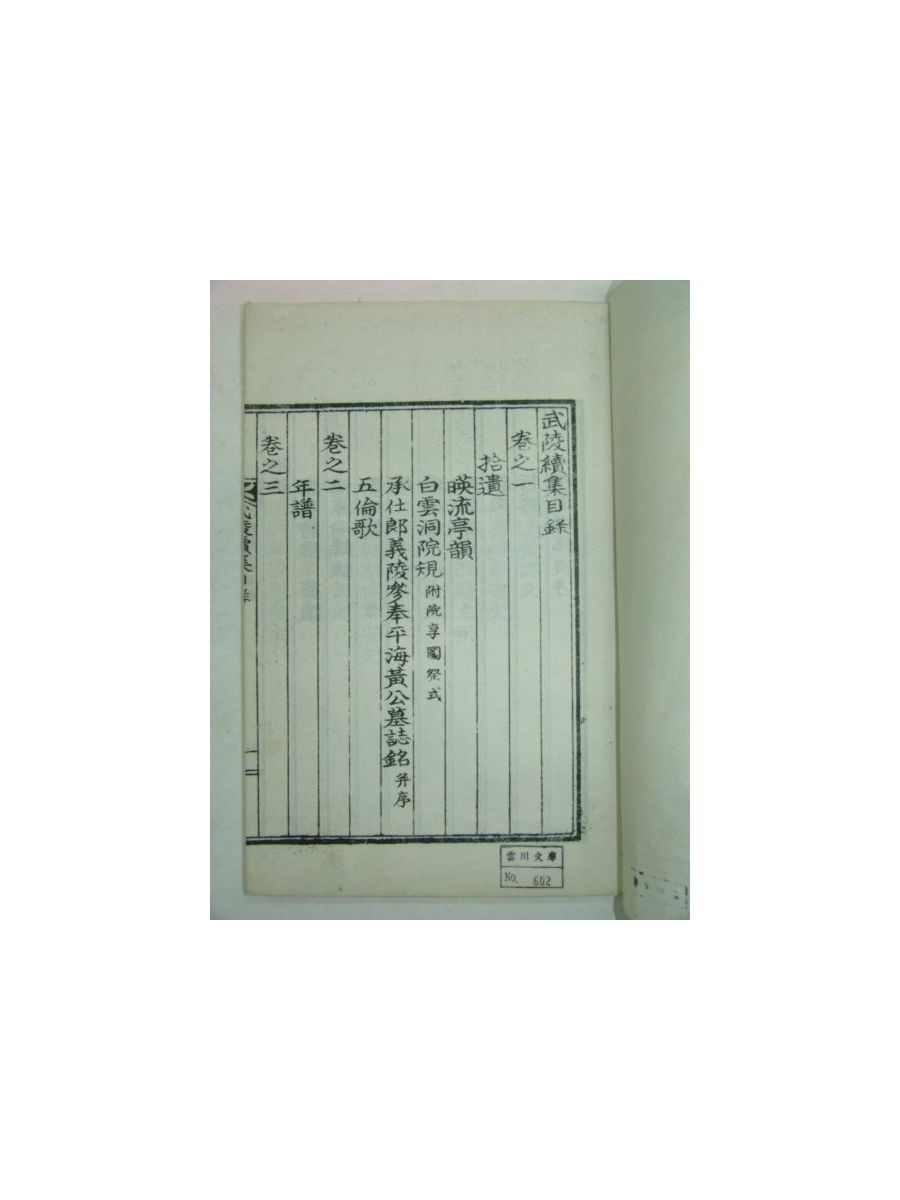 武陵續集目錄
卷之一
拾遺
暎流亭韻
白雲洞院規 附院享圖祭式
承仕郎義陵參奉平海黃公墓誌銘 幷序
五倫歌
卷之二
年譜
卷之三
雲川文庫
No. 602